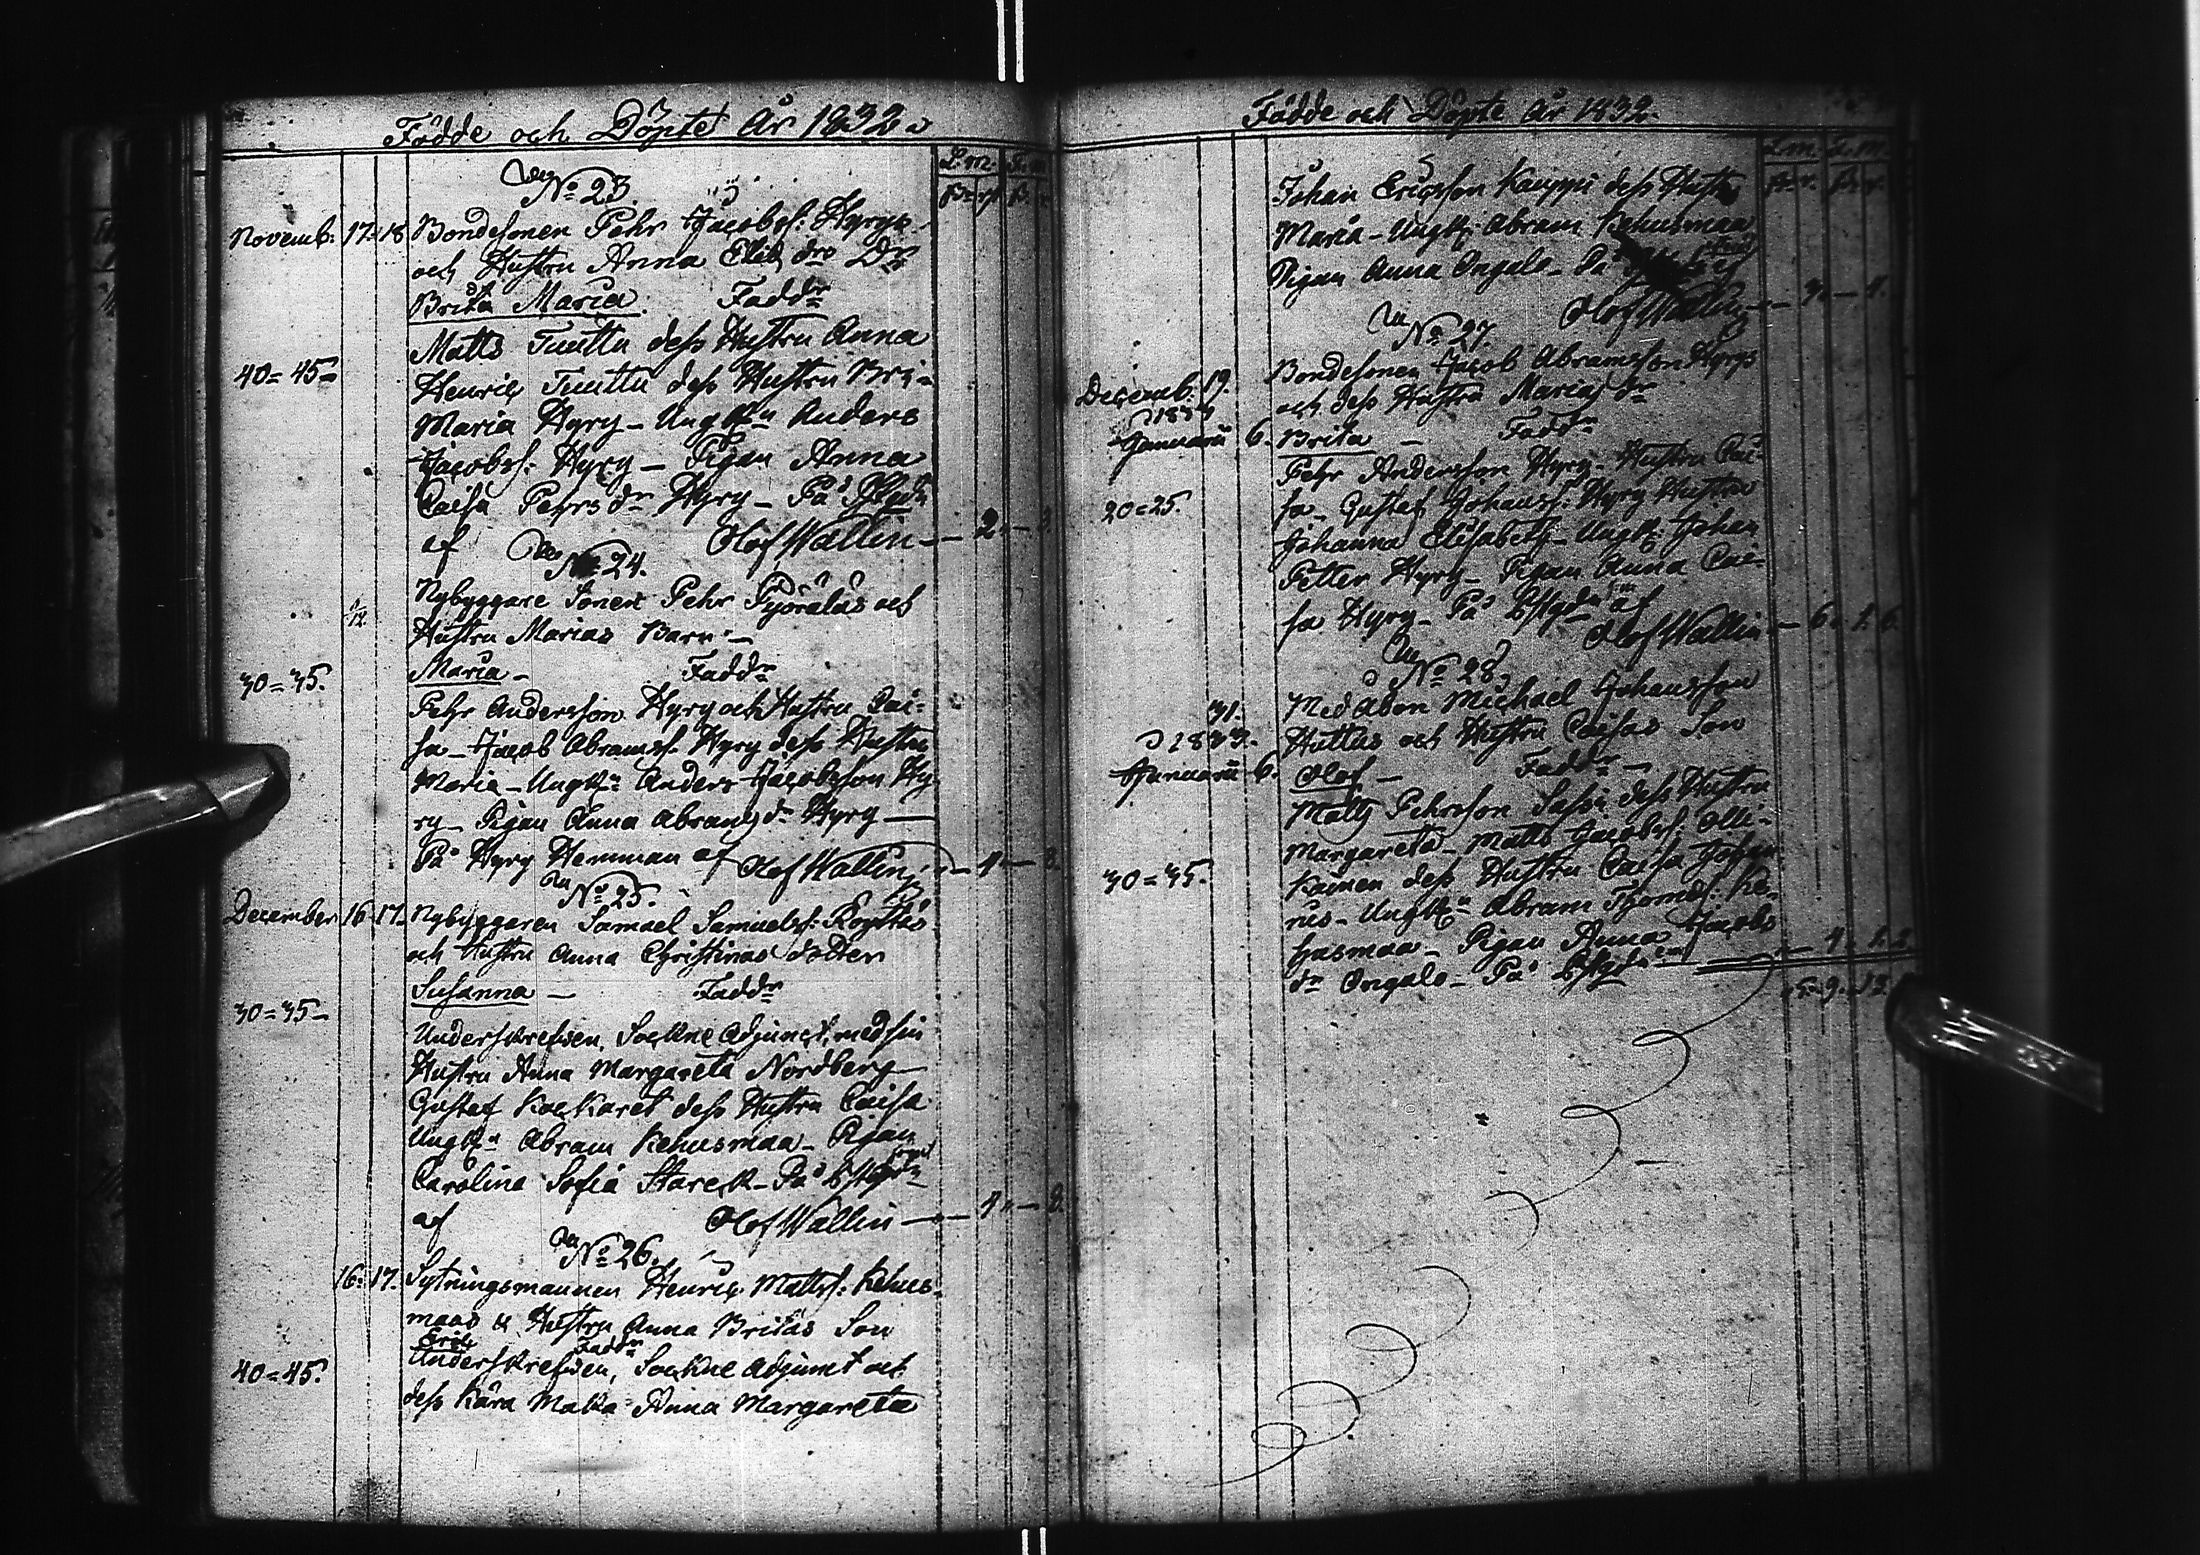 Födde och Döpte År 1832.
L. m. L. m.
No 23.
Novemb. 17. 18 Bondesonen Pehr Jacobss: Hyrys
och Hustru Anna Elis. drs Dr
Brita Maria. Faddr
Matts Tuuttu dess Hustru Anna
40=45 Henric Tuuttu dess Hustru Bri-
Maria Hyry - Ungkn Anders
Jacobss: Hyry - Pigan Anna
Caisa Pehrs dr Hyry - På
af Olof Wallin - 2.
No 24.
Nybyggare Sonen Pehr Pyöräläs och
Hustru Marias Barn -
Maria - Faddr
30=35. Pehr Andersson Hyry och Hustru Cai-
sa - Jacob Abramss. Hyry dess Hustru
Maria - Ungkn Anders Jacobsson Hy-
ry - Pigan Anna Abrams dr Hyry
På Hyry Hemman af Olof Wallin - 4 - 3.
No 25.
December 16 17. Nybyggaren Samuel Samuelss:
och Hustru Anna Christinas dotter
Susanna - Faddr
30=35 - Underskrefwen, Sockne Adjunct, med sin
Hustru Anna Margareta Nordberg
Gustaf Kockaret dess Hustru Caisa
Ungkn Abram Kehusmaa - Pigan
Carolina Sofia Starck - På
af Olof Wallin - 4 -
No 26.
16. 17. Sytningsmannen Henric Mattss: Kehus-
maas & Hustru Anna Britas Son
Eric Faddr
40=45. Underskrefwen, Sockne Adjunct och
dess kära Maka Anna Margareta
Födde och Döpte År 1832.
L. m. L. m.
Johan Ericsson Kauppi dess Hustru
Maria - Ungk: Abram Kehusmaa
Pigan Anna Ongalo - På
Olof Wallin
No 27.
Decemb. 19. Bondesonen Jacob Abramsson Hyrys
och dess Hustru Marias dr
1833
Januarii 6. Brita - Faddr
Pehr Andersson Hyry - Hustru Cai-
20=25. sa - Gustaf Johanss: Hyry Hustru
Johanna Elisabeth - Ungk: Johan
Petter Hyry - Pigan Anna Cai-
sa Hyry - På af
Olof Wallin - 6. 1. 6.
No 28.
31. Medåbon Michael Johansson
Huttus och Hustru Caisas Son
1833.
Januarii 6. Olof - Faddr -
Matts Pehrsson Sassi dess Hustru
Margareta - Matts Jacobss: Olli-
30=35. kainen dess Hustru Caisa
- Ungkn Abram Thomass: Ke-
husmaa - Pigan Anna Jacobs
dr Ongalo - På